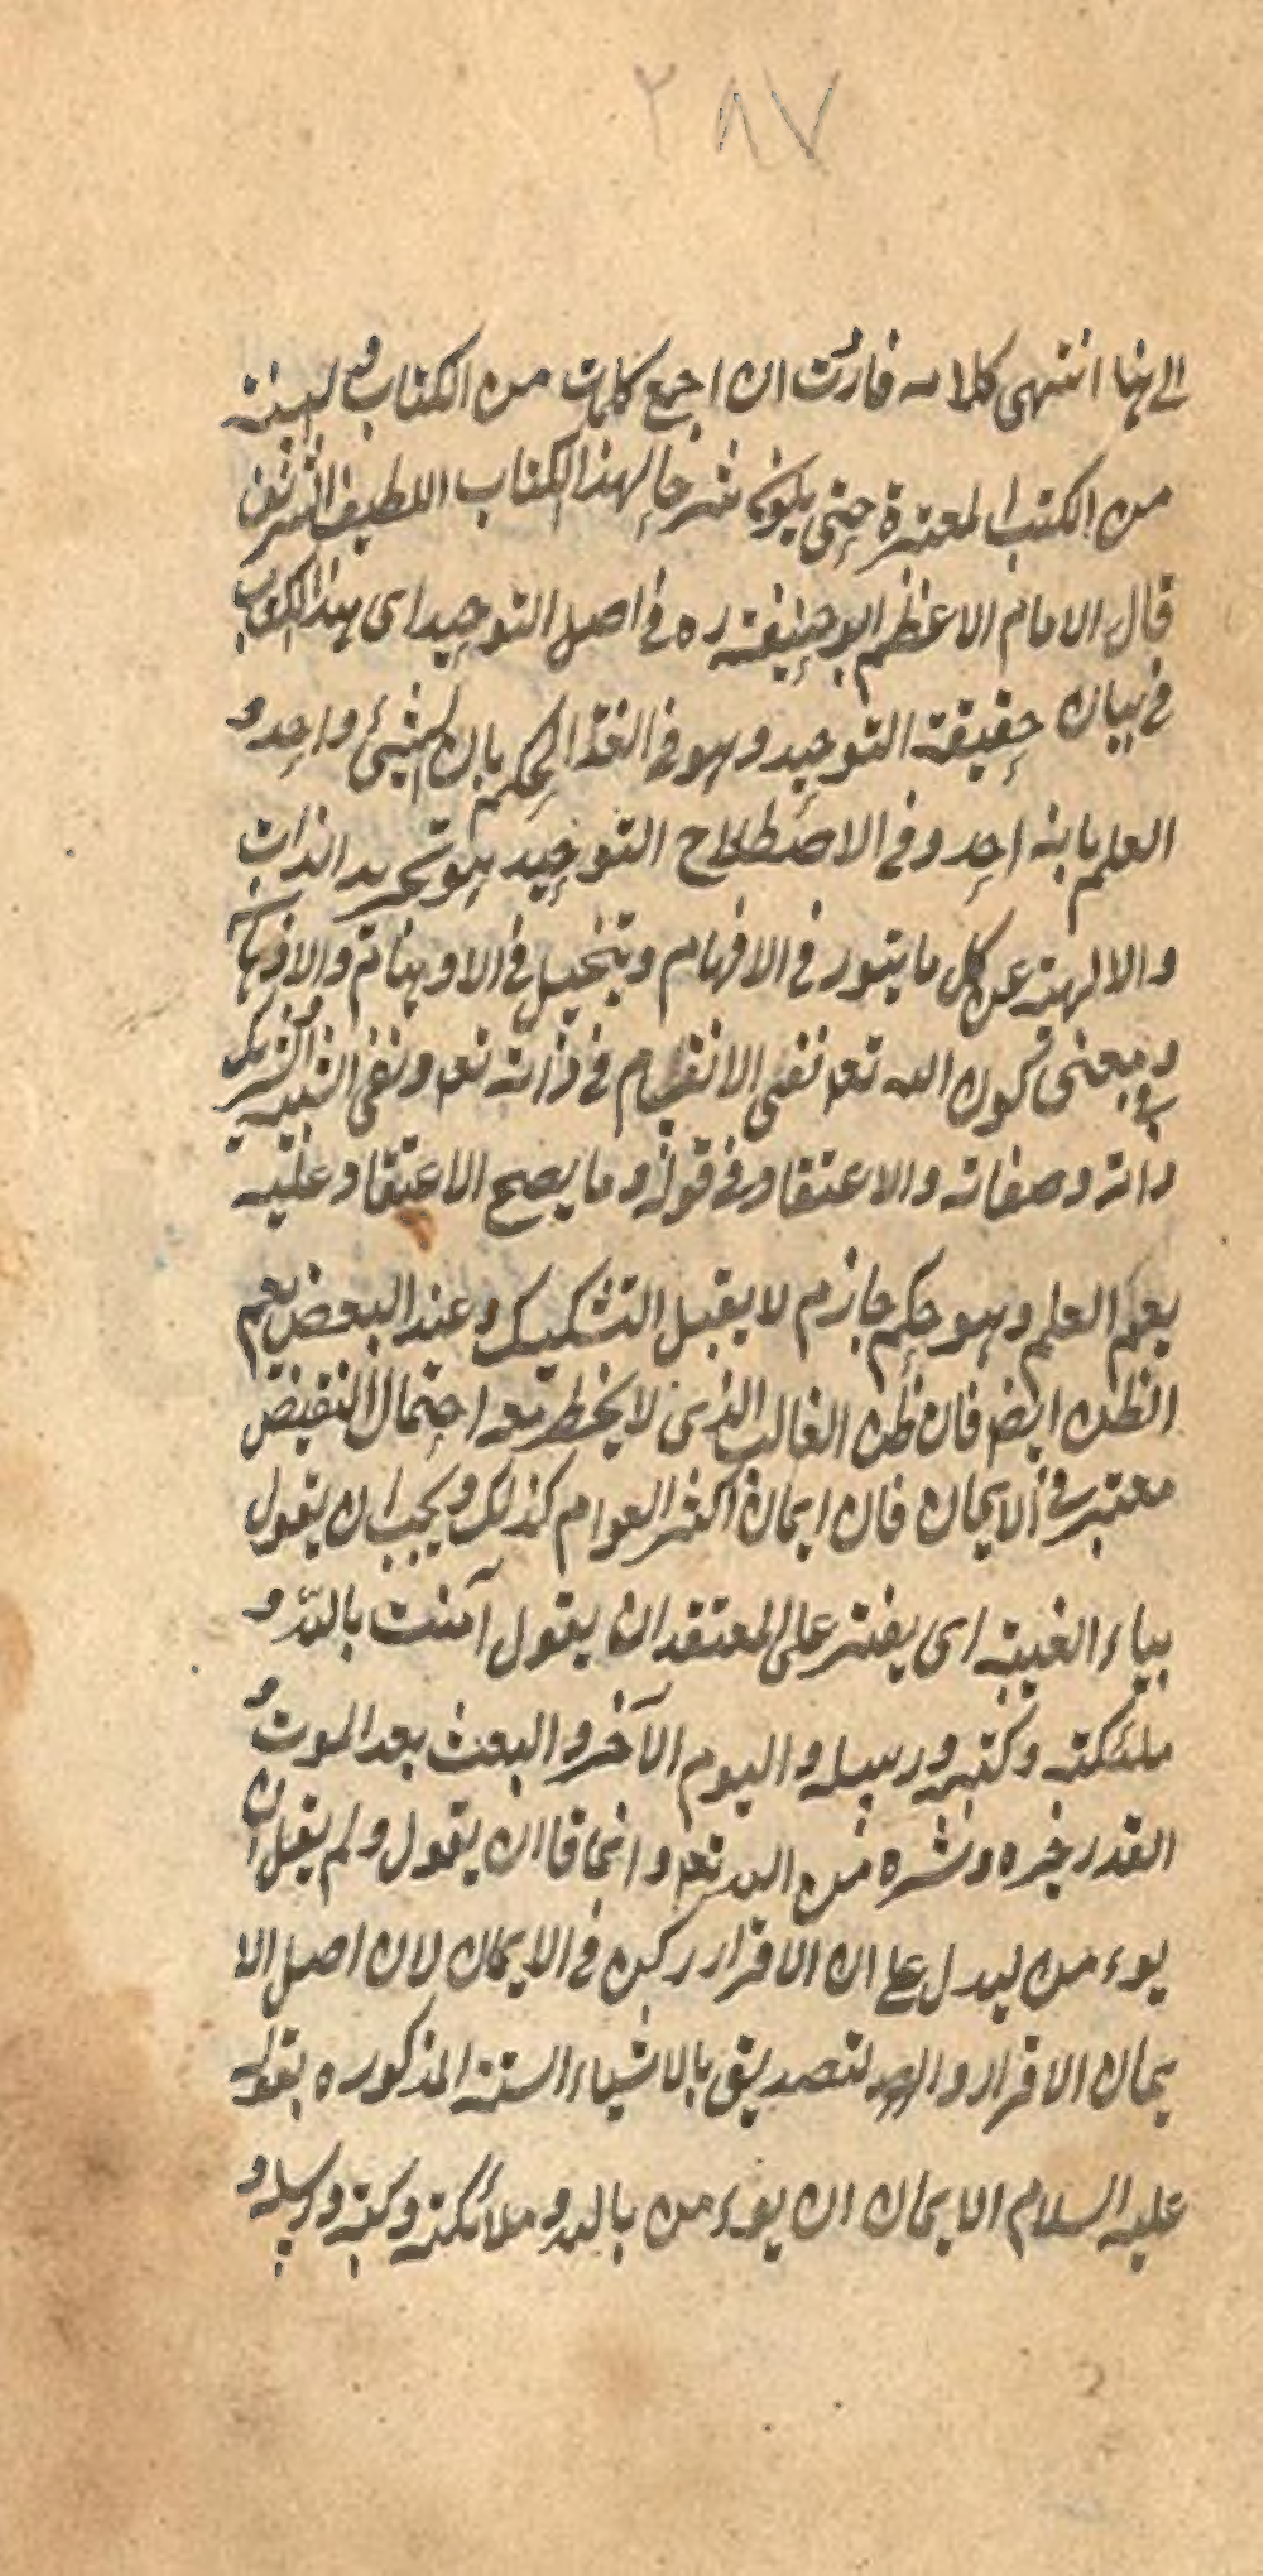 ٢٨٧
الى هنا انتهى كلامه فاردت ان اجمع كلمات من الكتاب و
من الكتب المعتبرة حتى يكون شرحا لهذا الكتاب اللطيف الشريف
قال الامام الاعظم ابو حنيفة ره فى اصل التوحيد اى هذا الكتاب
فى بيان حقيقة التوحيد وهو فى اللغة الحكم بان الشيئ واحد و
العلم بانه احد وفى الاصطلاح التوحيد هو تجريد الذات
والالهية عن كل ما يتور فى الافهام ويتخيل فى الاوهام والاذهان
و معنى كون الله تعه نفى الانقسام فى ذاته تعه ونفى الشبيه والشريك
ذاته وصفاته والاعتقاد فى قوله وما يصح الاعتقاد عليه
يعم العلم وهو حكم جازم لا يقبل التشكيك وعند البعض يعم
الظن ايض فان ظن الغالب الذى لا يخطر معه احتمال النقيض
معتبر فى الايمان فان ايمان اكثر العوام كذلك ويجب ان يقول
بياء الغيبة اى يفتر على المعتقد ان يقول آمنت بالله و
ملئكته وكتبه ورسله واليوم الآخر والبعث بعد الموت و
القدر خيره وشره من الله تعه وانما قا ان يقول ولم يقل ان
يوءمن ليدل على ان الاقرار ركن فى الايمان لان اصل الا
يمان الاقرار والتصديق بالاشياء الستة المذكوره بقوله
عليه السلام الايمان ان يوءمن بالله وملائكته وكتبه ورسله و